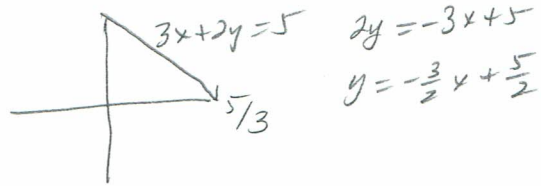 3x+2y=5
5/3
2y=-3x+5
y=-3/2 x+5/2